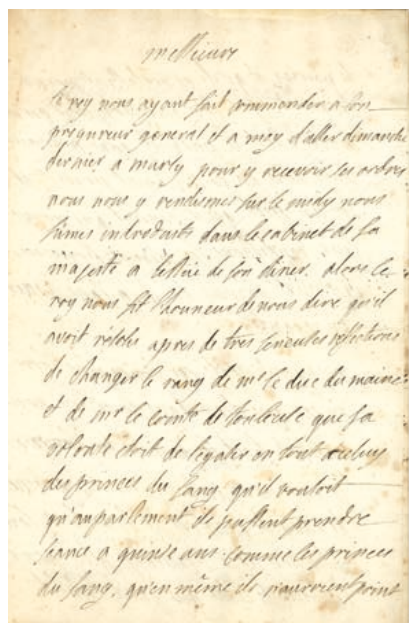 messieurs
le roy nous ayant fait commander a son
procureur general et a moy d'aller dimanche
dernier a marly pour y recevoir ses ordres
nous nous y rendismes sur le midy nous
fumes introduits dans le cabinet de sa
majesté a l'issüe de son diner. alors le
roy nous fit l'honneur de nous dire qu'il
avoit résolu apres de tres serieuses reflections
de changer le rang de mr le duc du maine
et de mr le comte de toulouse que sa
volonté étoit de l'égaler en tout a celuy
des princes du sang qu'il vouloit
qu'au parlement ils pussent prendre
seance a quinse ans comme les princes
du sang, qu'en même ils n'auroient point